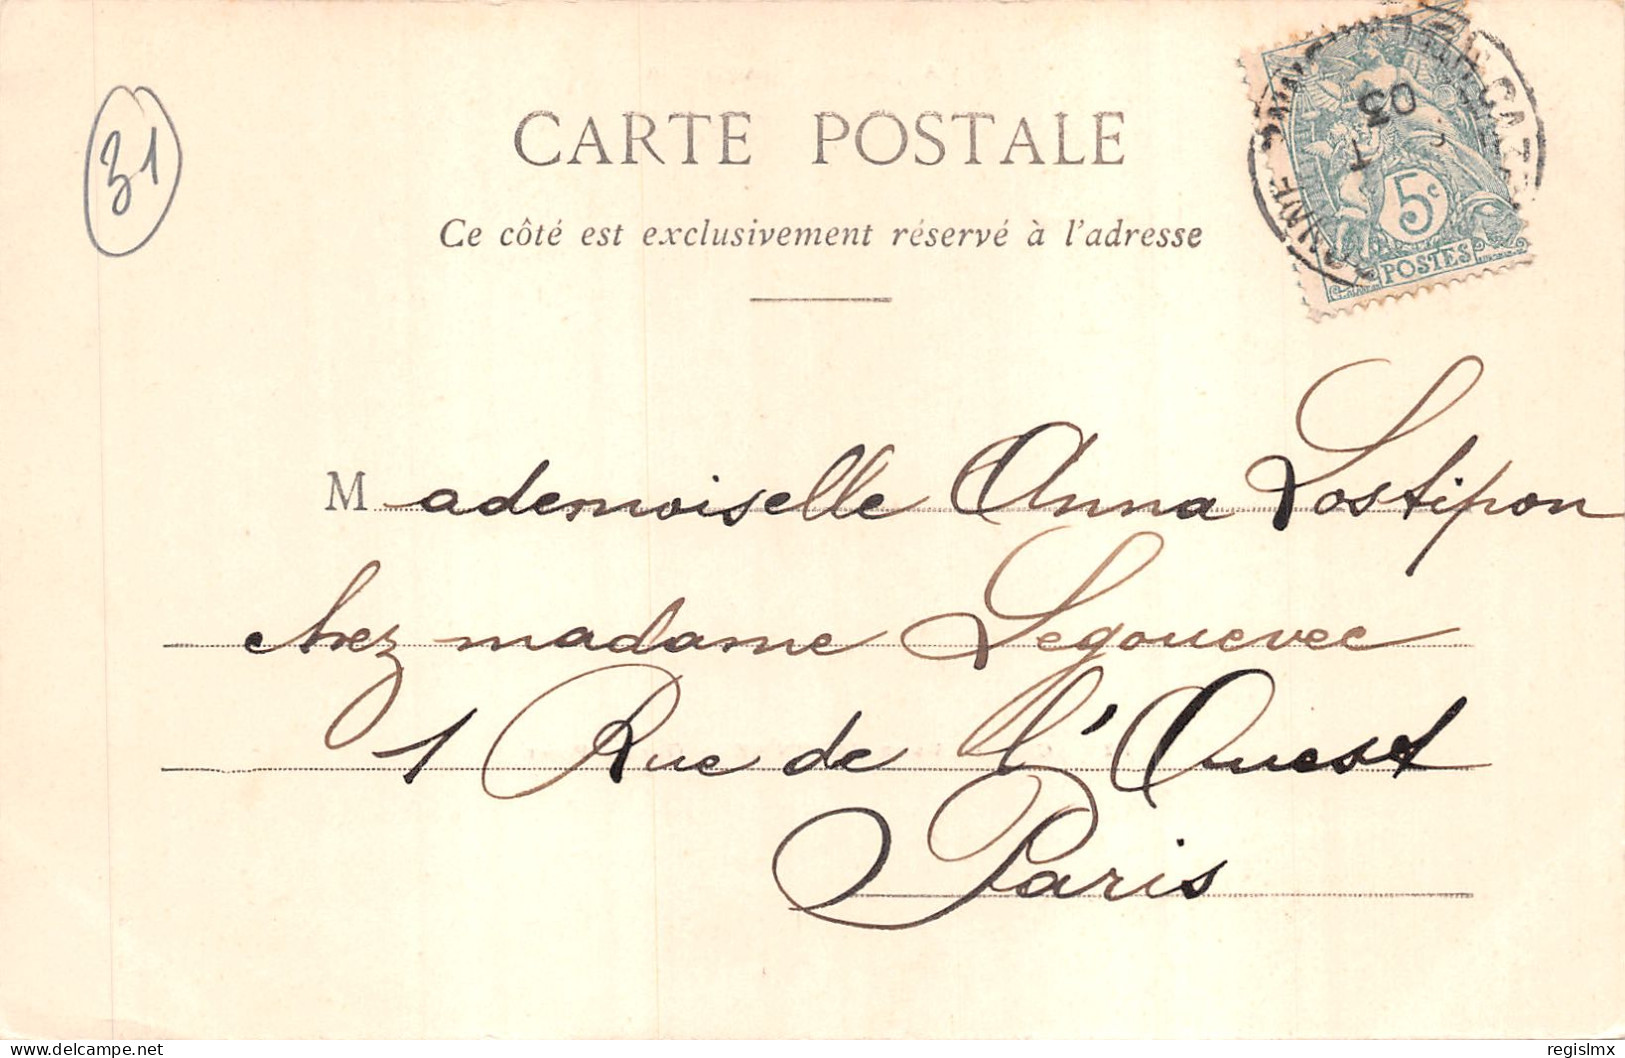 31
CARTE POSTALE
Ce côté est exclusivement réservé à l'adresse
03
5c
POSTES
Mademoiselle Anna Lostipon
chez madame Legouevec
1 Rue de l'Ouest
Paris
delcampe.net
regislmx